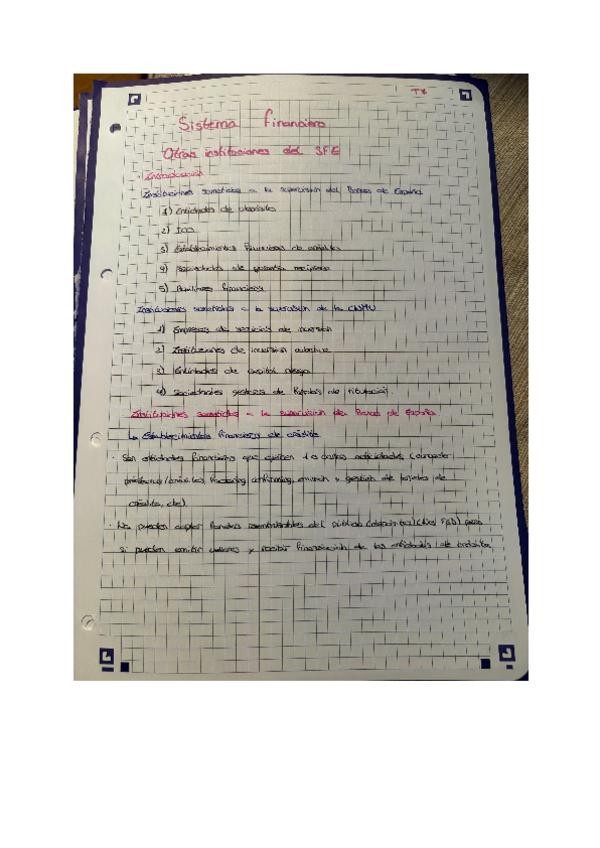 Sistema Financiero
Otras instituciones del SFE
· Introducción
Instituciones sometidas a la supervisión del Banco de España
1) Entidades de
2) ICO
3) Establecimientos financieros de crédito
4) Sociedades de garantía recíproca
5) Auxiliares financieros
Instituciones sometidas a la supervisión de la CNMV
1) Empresas de servicios de inversión
2) Instituciones de inversión colectiva
3) Entidades de capital riesgo
4) Sociedades gestoras de fondos de titulización
Instituciones sometidas a la supervisión del Banco de España
Establecimientos financieros de crédito
· Son entidades financieras que ejercen 1 o varias actividades (conceder
préstamos/créditos, factoring, confirming, emisión y gestión de tarjetas de
crédito, etc)
· No pueden captar fondos reembolsables del público pero
sí pueden emitir valores y recibir financiación de las entidades de crédito